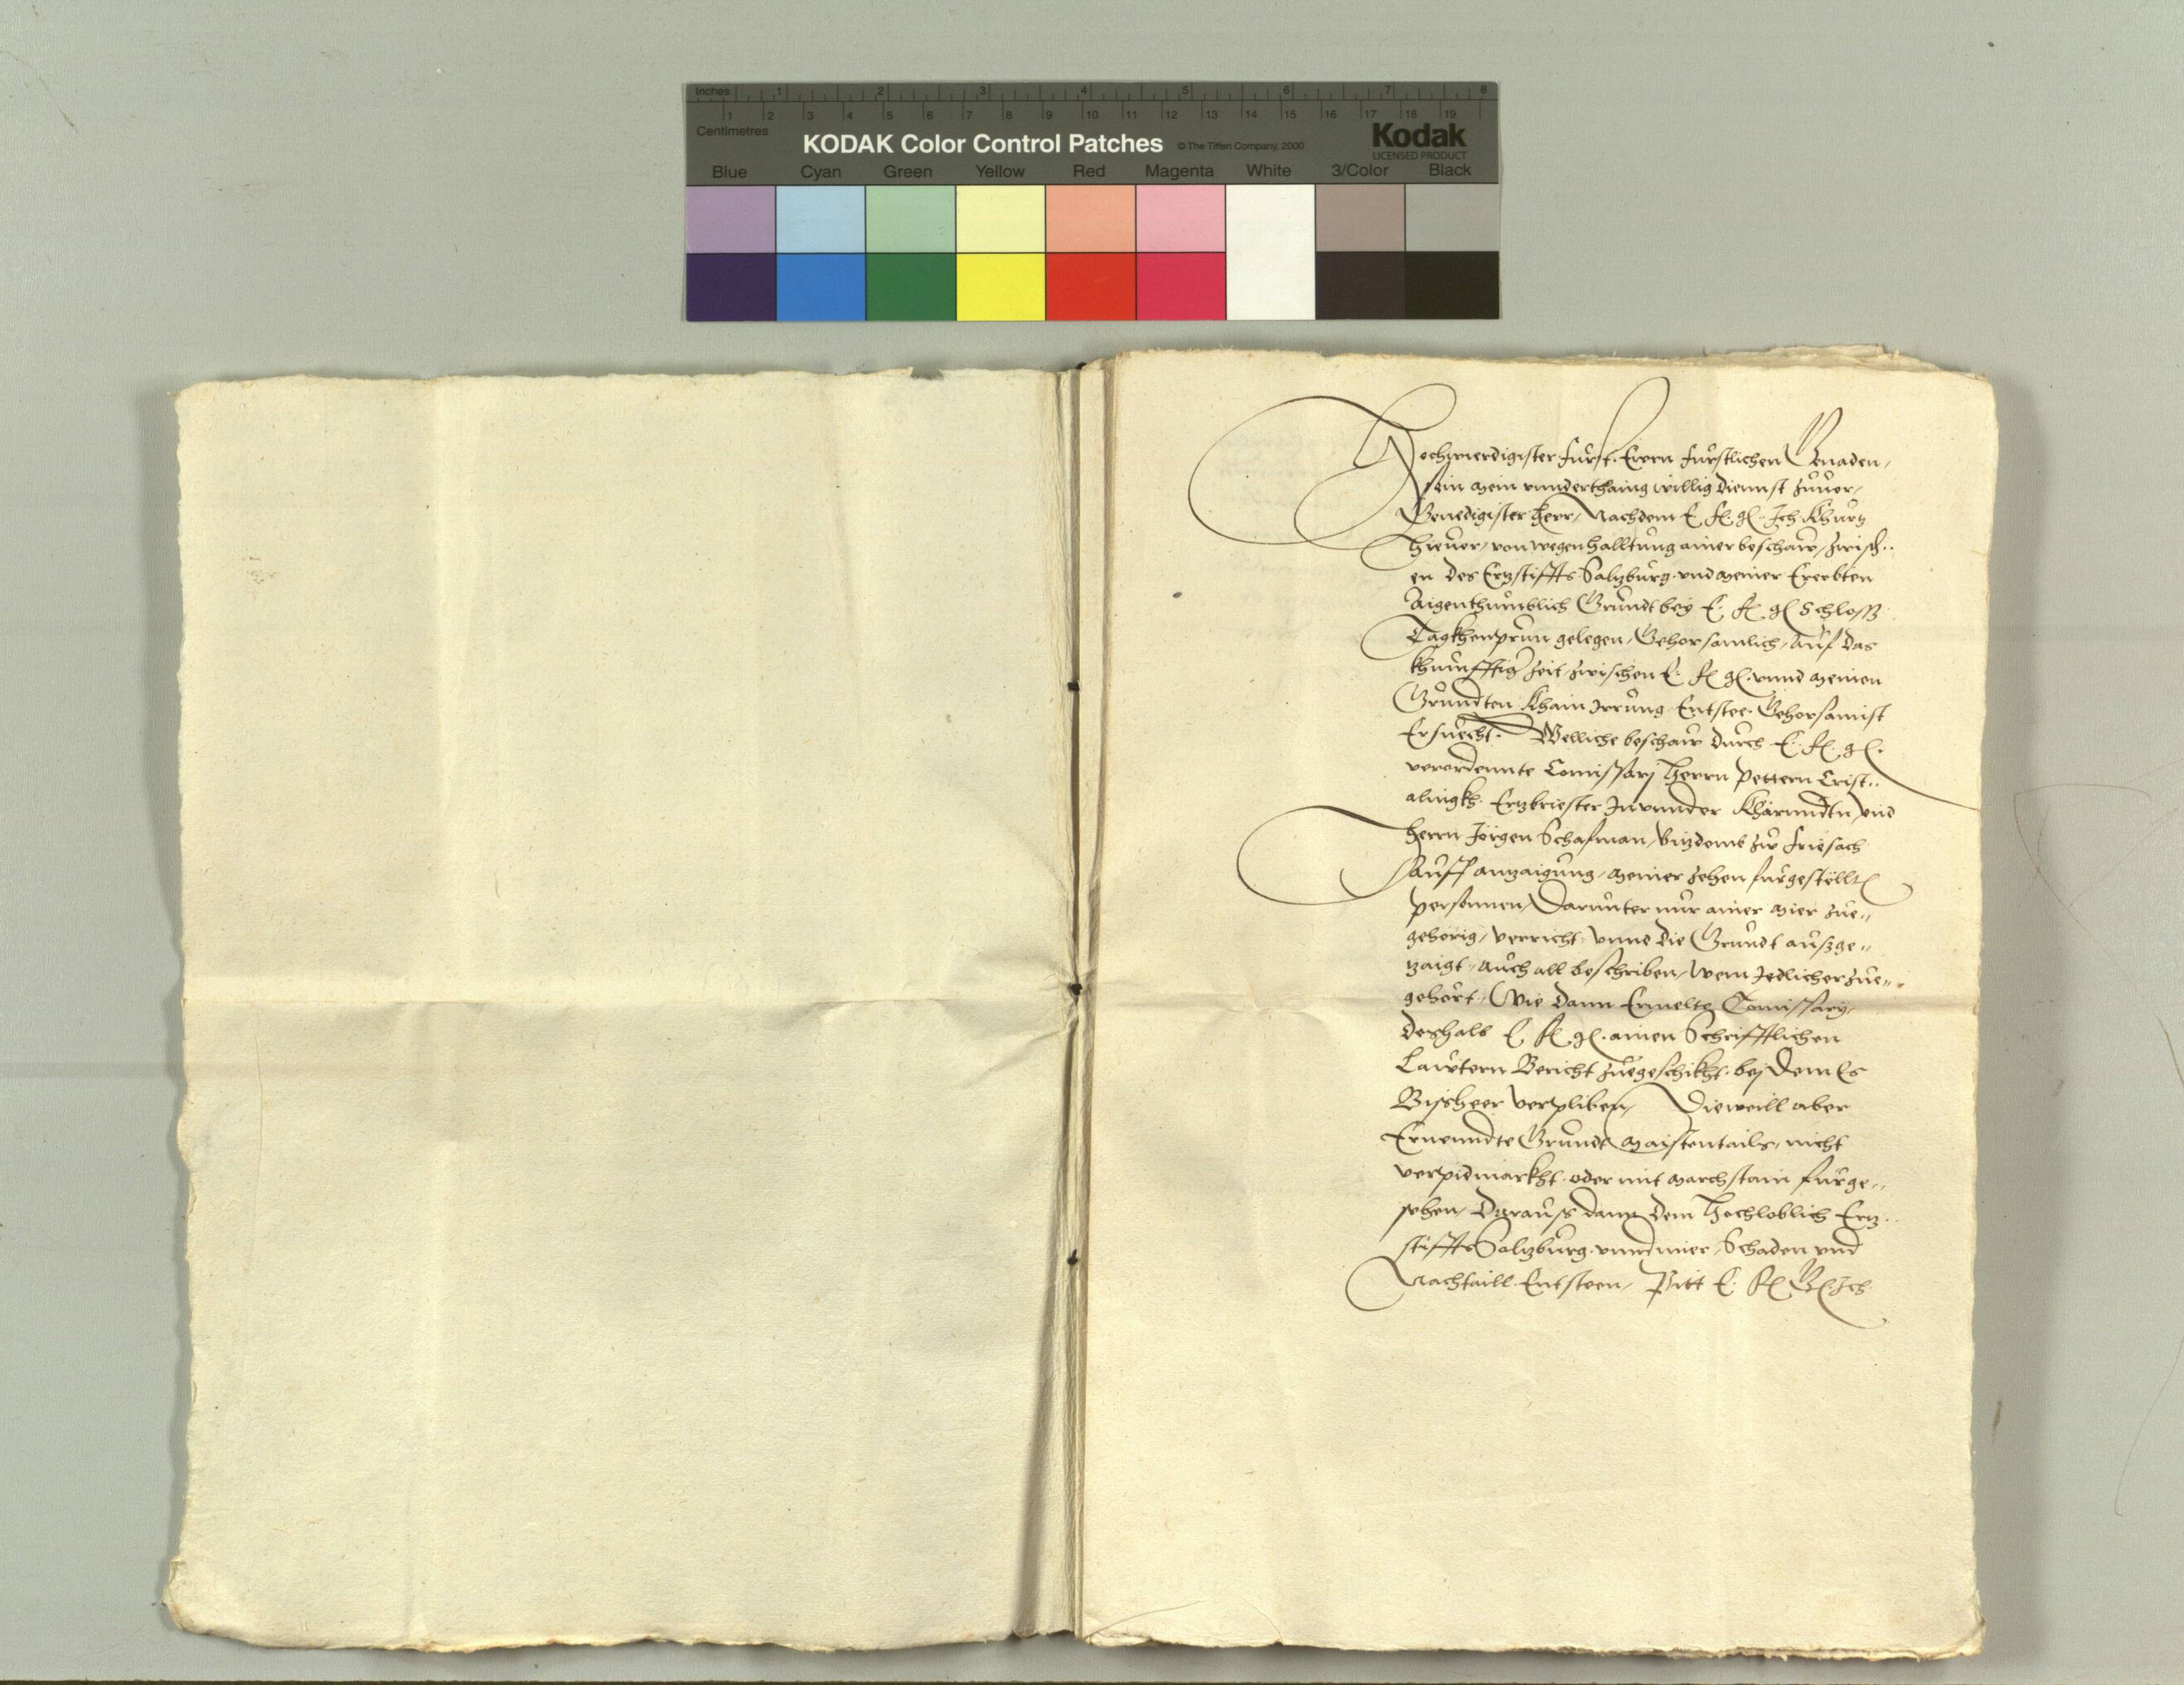 Inches 1 2 3 4 5 6 7 8
1 2 3 4 5 6 7 8 9 10 11 12 13 14 15 16 17 18 19
Centimetres
KODAK Color Control Patches © The Tiffen Company, 2000 Kodak
LICENSED PRODUCT
Blue Cyan Green Yellow Red Magenta White 3/Color Black
Hochwierdigister Fürst. Eurn Fürstlichen Genaden,
sein mein vnnderthanig willig diennst zuuor,
Genedigister Herr, Nachdem E. F. G. Ich Khurtz
hieuor, von wegen Halltung ainer beschaw, zwisch..
en des Ertzstiffts Saltzburg. vnd meiner Ererbten
Aigenthumblich Grundt bey E. F. G. Schloss
Tagkhenprun gelegen, Gehorsamlich, Auf das
khunfftig zeit zwischen E. F. G. vnnd meinen
Grundten Khain Irrung Entstee. Gehorsamist
Ersuecht. Welliche beschaw durch E. F. G.
verordennte Comissarj Herrn Pettern Crist..
alnigkh. Ertzbriester In vnnder Khärnndtn vnd
Herrn Jörgen Schafman, Vitzdomb zw Friesach
Auff antzaigung, meiner zehen furgestellt
personnen, Darunter nur ainer mier zue,,
gehörig, verricht, vnnd die Grundt aussge,,
tzaigt, auch all beschriben, wem Jedlicher zue,,
gehört, Wie dann Ermelte Comissarj,
deshalb E. F. G. ainen Schrifftlichen
Lawtern Bericht zuegeschikht. bej Dem Es
Bissheer verpliben, Dieweill aber
Ernenndte Grundt maistentails, nicht
verpidmarkht. oder mit marchstain fürge,,
sehen, Darauss dann dem Hochloblich Ertz..
stiffts Saltzburg. vnnd mier, Schaden vnd
Nachtaill Entsteen, Pitt E. F. G. Ich